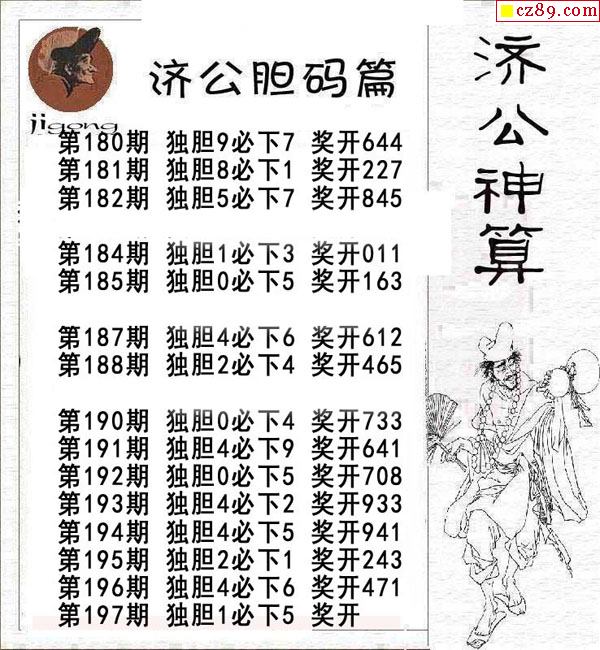 cz89.com
济公胆码篇
jigong
第180期 独胆9必下7 奖开644
第181期 独胆8必下1 奖开227
第182期 独胆5必下7 奖开845
第184期 独胆1必下3 奖开011
第185期 独胆0必下5 奖开163
第187期 独胆4必下6 奖开612
第188期 独胆2必下4 奖开465
第190期 独胆0必下4 奖开733
第191期 独胆4必下9 奖开641
第192期 独胆0必下5 奖开708
第193期 独胆4必下2 奖开933
第194期 独胆4必下5 奖开941
第195期 独胆2必下1 奖开243
第196期 独胆4必下6 奖开471
第197期 独胆1必下5 奖开
济公神算